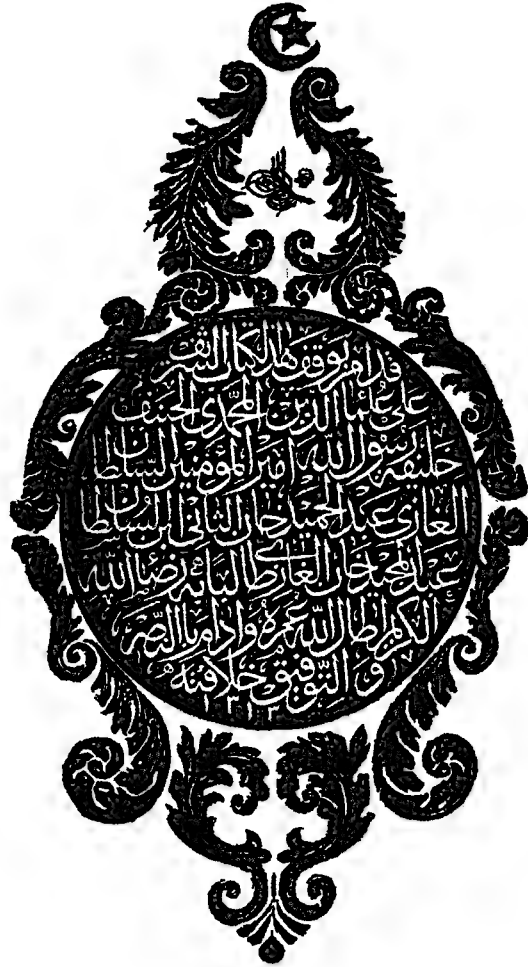 قد امر بوقف هذا الكتاب الشريف
على علماء الدين المحمدى الحنيف
خليفة رسول الله امير المؤمنين السلطان
الغازى عبد الحميد خان الثانى ابن السلطان
عبد المجيد خان الغازى طالبا به رضا الله
الكريم اطال الله عمره وادام بالنصر
و التوفيق خلافته
١٣١٣